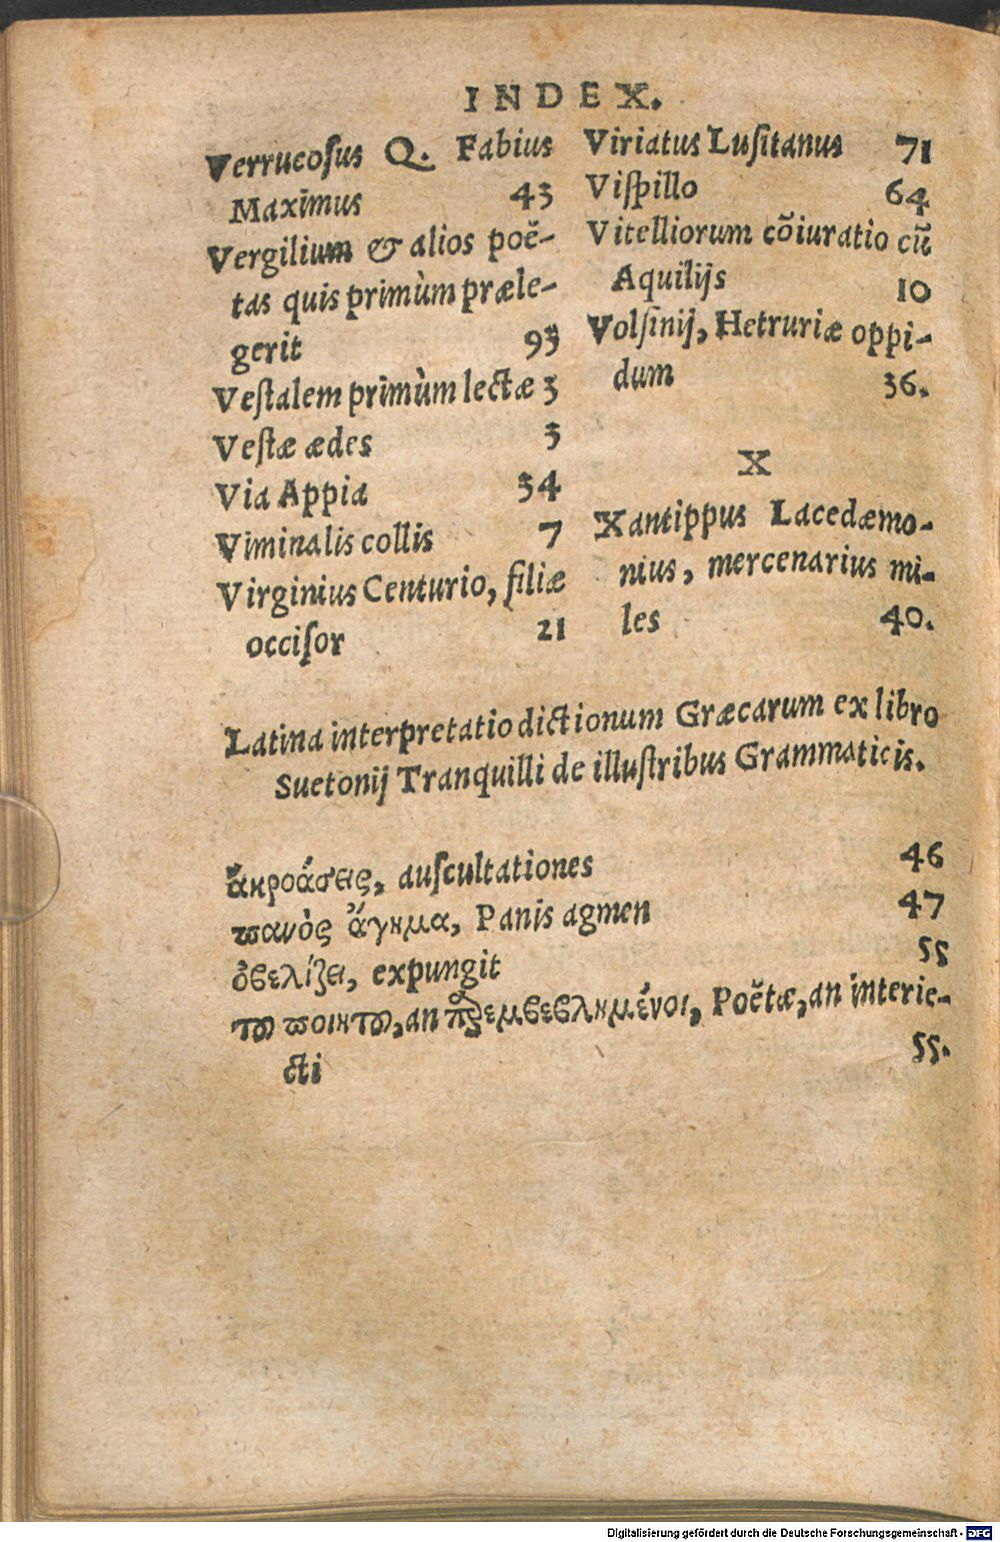 INDEX.
Verrucosus Q. Fabius
Maximus 43
Vergilium & alios poë-
tas quis primùm præle-
gerit 93
Vestalem primùm lectæ 3
Vestæ ædes 3
Via Appia 34
Viminalis collis 7
Virginius Centurio, filiæ
occisor 21
Viriatus Lusitanus 71
Vispillo 64
Vitelliorum cōiuratio cū
Aquilijs 10
Volsinij, Hetruriæ oppi-
dum 36.
X
Xantippus Lacedæmo-
nius, mercenarius mi-
les 40.
Latina interpretatio dictionum Græcarum ex libro
Suetonij Tranquilli de illustribus Grammaticis.
ἀκροάσεις, auscultationes 46
πανὸς ἄγημα, Panis agmen 47
ὀβελίζει, expungit 55
ποιητ, an παρεμβεβλημένοι, Poëtæ, an interie-
cti 55.
Digitalisierung gefördert durch die Deutsche Forschungsgemeinschaft - DFG